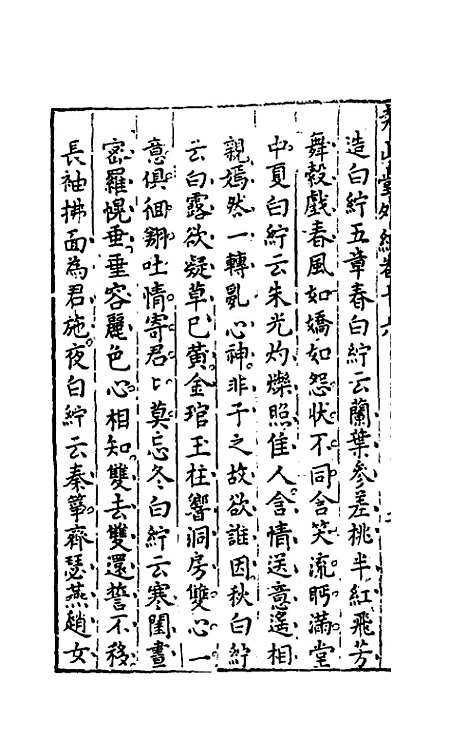 堯山堂外紀卷十六
造白紵五章春白紵云蘭葉參差桃半紅飛芳
舞縠戲春風如嬌如怨狀不同含笑流眄滿堂
中夏白紵云朱光灼爍照佳人含情送意遙相
親嫣然一轉亂心神非子之故欲誰因秋白紵
云白露欲凝草已黃金琯玉柱響洞房雙心一
意俱徊翔吐情寄君君莫忘冬白紵云寒閨晝
密羅幌垂垂容麗色心相知雙去雙還誓不移
長袖拂面為君施夜白紵云秦箏齊瑟燕趙女